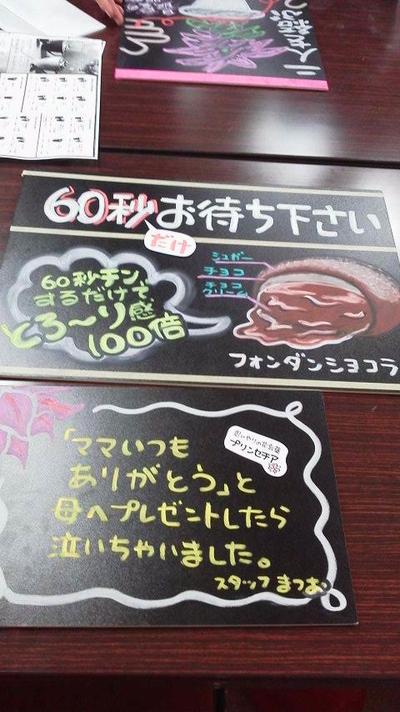 60秒お待ち下さい
だけ
60秒チン
するだけで、
とろ〜り感
100倍
シュガー
チョコ
チョコ
クリーム
フォンダンショコラ
「ママいつも
ありがとう」と
母へプレゼントしたら
泣いちゃいました。
プリンセチア
スタッフ まつお